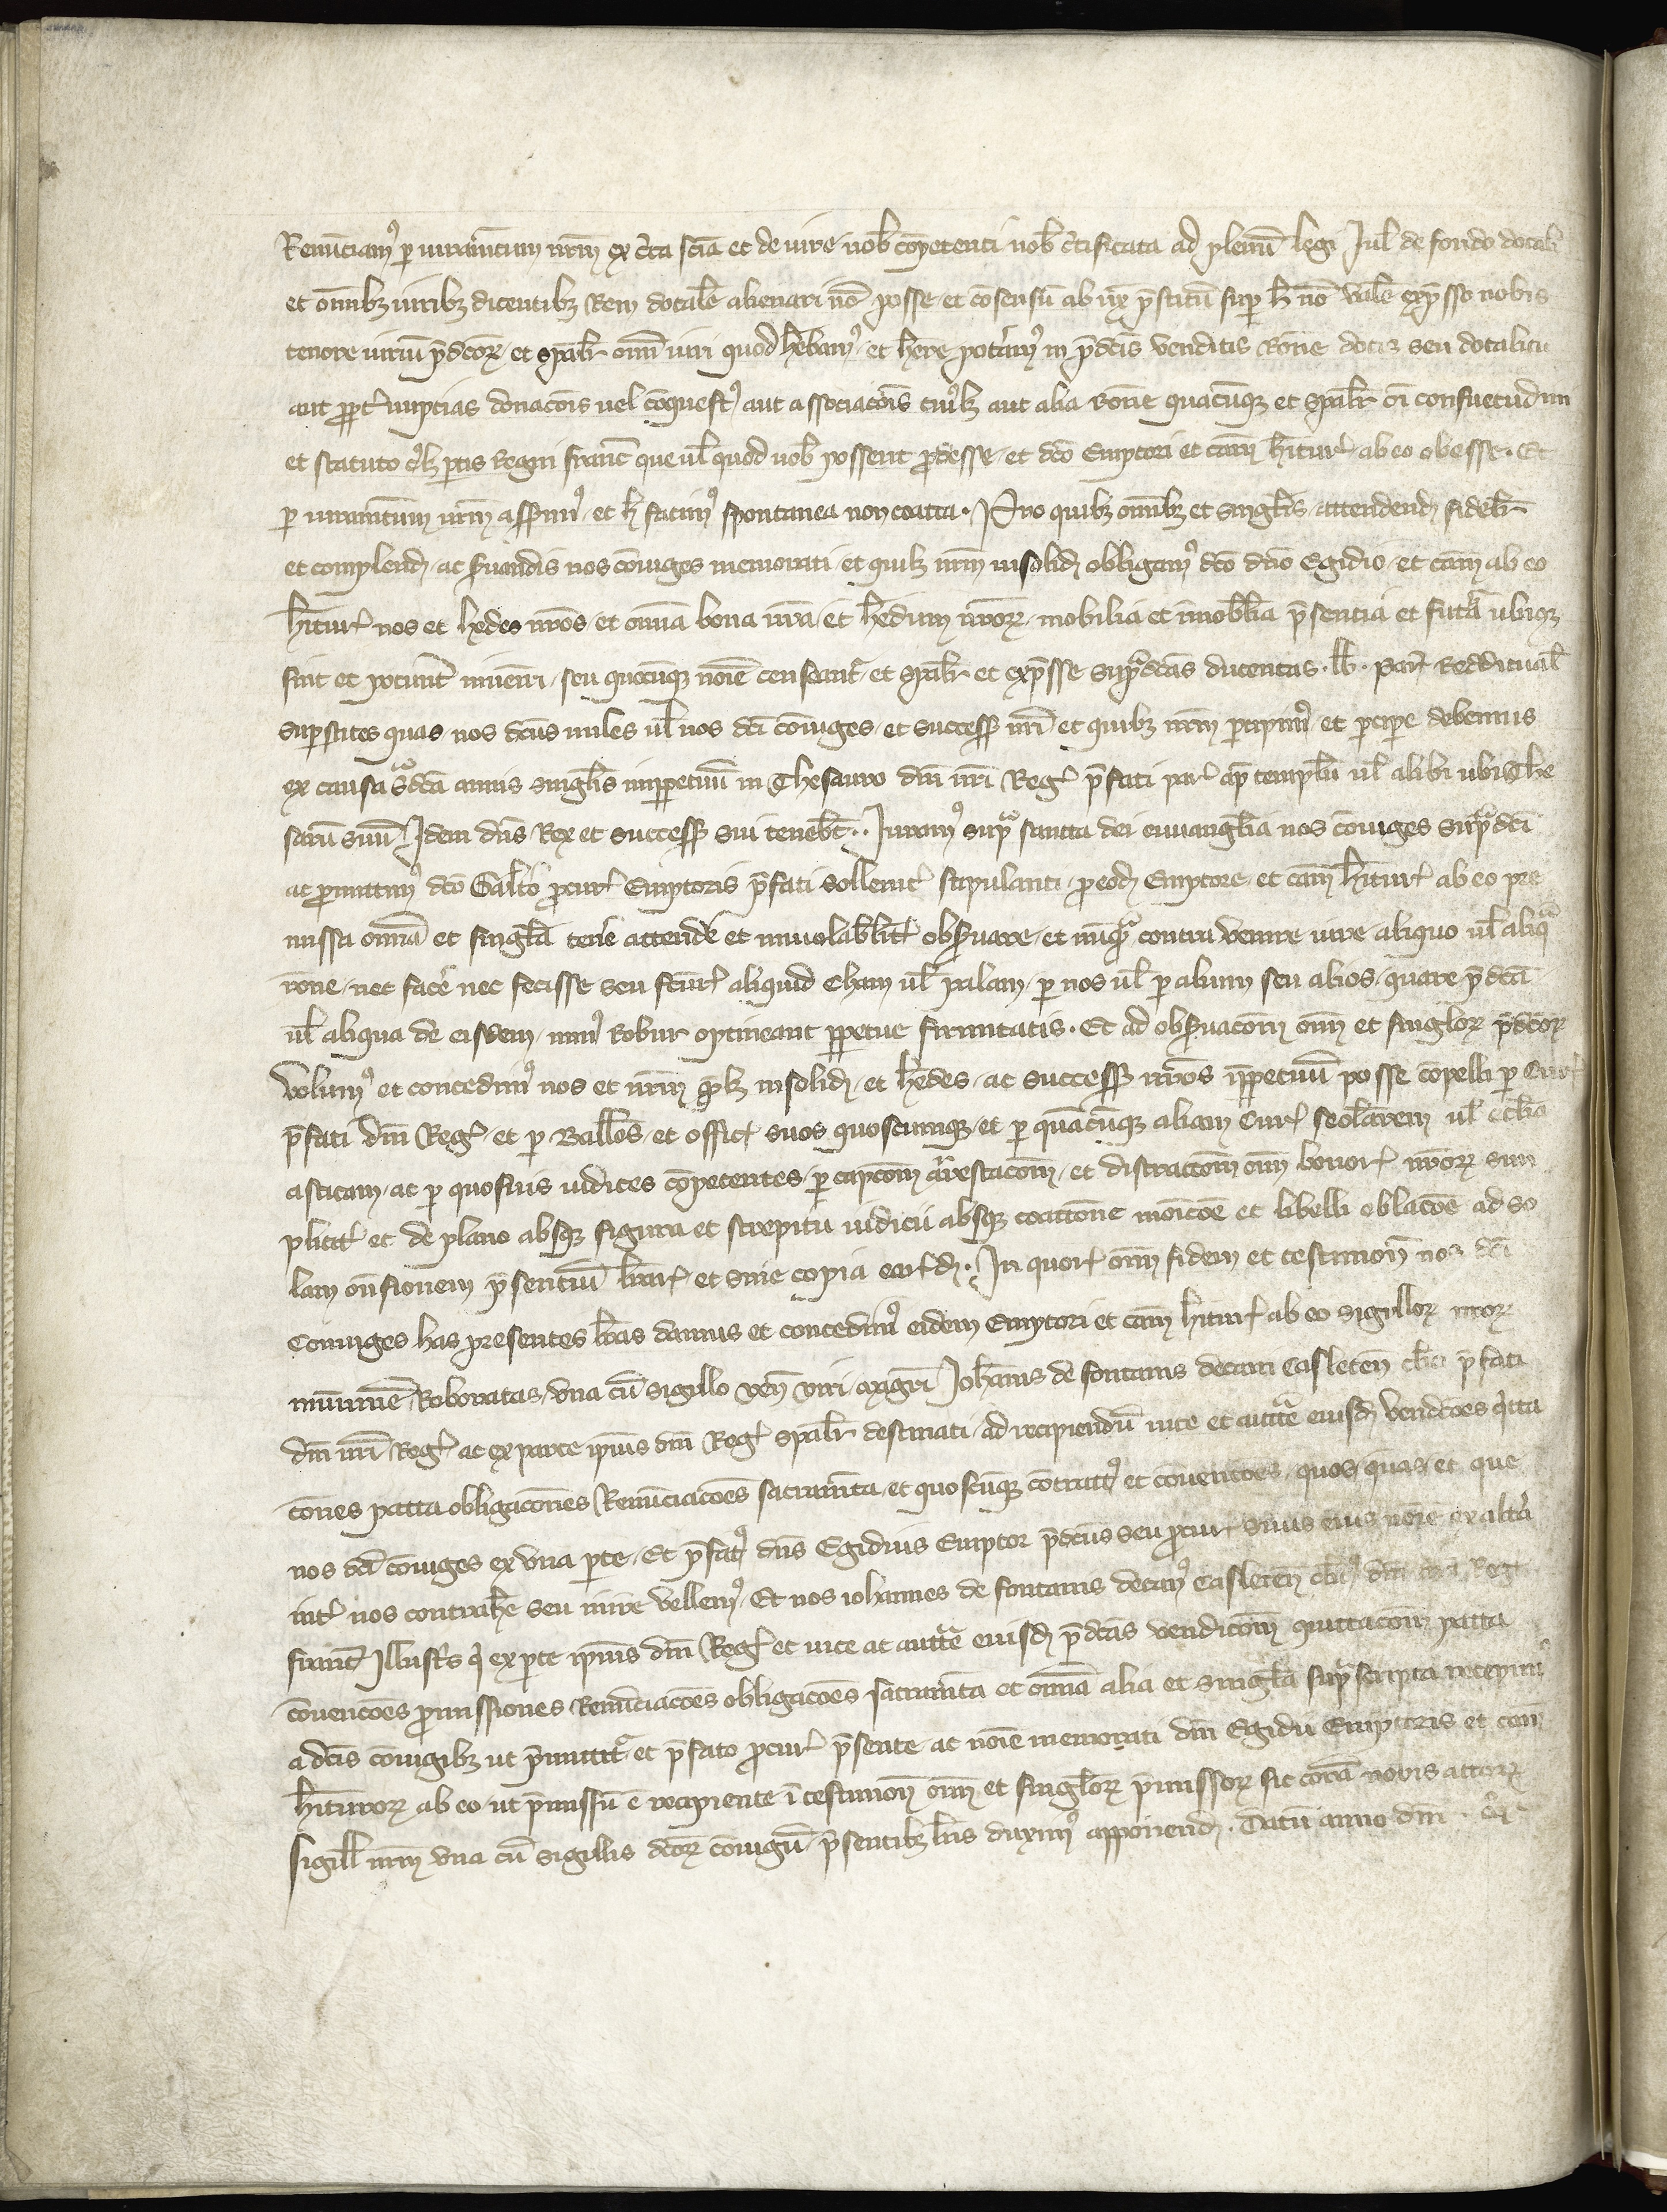 Renūciamꝰ ꝑ iuramtum nrm̄ ex c̄ta scīa et de iure nob̄ cōpetenti nob̄ c̄tificata ad plenū legi Jul̄ de fondo dotali
et om̄ibꝫ iuribꝫ dicentibꝫ Rem dotalē alienari nō posse et cōsensū ab ux̄ p̄stitū suꝑ h̄ nō valē exp̄sso nobis
tenore iuriū p̄dc̄oꝝ et spāl̄r om̄i iuri quod hēbamꝰ et hēre pot̄amꝰ in p̄dc̄is venditis rōne dotis seu dotalicii
aut ꝓpt̄ nuptias donacōis uel cōquestꝰ aut associacōis cuiꝰlꝫ aut alia rōne quacūqꝫ et spāl̄r oī consuetudini
et statuto cuiꝰlꝫ ꝑtis Regni franc̄ que ul̄ quod nob̄ possent ꝓdesse et dc̄o Emptori et cām h̄itur̄ ab eo obesse. Et
ꝑ iuramtum nrm̄ asserimꝰ et h̄ facimꝰ spontanea non coacta. Pro quibꝫ om̄ibꝫ et singl̄is attendend̄ fidel̄r
et complend̄ ac s̄uandis nos cōiuges memorati et quilꝫ nrm̄ insolid̄ obligamꝰ dc̄o dn̄o Egidio et cām ab eo
h̄itur̄ nos et h̄edes nr̄os et om̄ia bona nr̄a et h̄edum nr̄oꝝ mobilia et īmobilia p̄sentia et futā ubiqꝫ
sint et potūt inueniri seu quocūqꝫ noīe censeant̄ et spāl̄r et exp̄sse sup̄dc̄as ducentas. lb̄. par̄ Reddituāl̄
supstites quas nos dc̄us miles ul̄ nos dc̄i cōiuges et success̄ nr̄i et quibꝫ nrm̄ ꝑcipimꝰ et ꝑcipe debemus
ex causa s̄dc̄a annis singl̄is imꝑpetuū in Thesauro dn̄i nr̄i Reḡ p̄fati par̄ ap̄ templū ul̄ alibi ubi The
saurū suū Idem dn̄s Rex et success̄ sui tenebt̄. Juramꝰ sup̄ sancta dei euuangl̄ia nos cōiuges sup̄dc̄i
ac ꝓmittimꝰ dc̄o Galt̄o ꝓcur̄ Emptoris p̄fati sollenit̄ stipulanti ꝓ eod̄ Emptore et cām h̄itur̄ ab eo pre
missa om̄ia et singl̄a tenē attendē et inuiolabilit̄ obs̄uare et nūq̄ contra venire iure aliquo ul̄ aliq̄
rōne nec facē nec fecisse seu fc̄ur̄ aliquid clam ul̄ palam ꝑ nos ul̄ ꝑ alium seu alios quare p̄dc̄a
ul̄ aliqua de eisdem minꝰ Robur optineant ꝑpetue firmitatis. Et ad obs̄uacōm om̄i et singlor̄ p̄dc̄oꝝ
volumꝰ et concedimꝰ nos et nrm̄ q̄mlꝫ insolid̄ et h̄edes ac success̄ nr̄os īꝑpetuū posse cōpelli ꝑ Cur̄
p̄fati dn̄i Reḡ et ꝑ Ballōs et offic̄ suos quoscumqꝫ et ꝑ quācūqꝫ aliam Cur̄ secl̄arem ul̄ ecc̄l̄ia
sticam ac ꝑ quosuis iudices cōpetentes ꝑ capcōm ārrestacōm et distraccōm om̄i bonor̄ nr̄oꝝ sim
plicit̄ et de plano absqꝫ figura et strepitu iudicii absqꝫ coaccōne monicōe et libelli oblacōe ad so
lam on̄sionem p̄sentiū l̄rar̄ et sine copia ear̄d̄. In quor̄ om̄i fidem et testimon̄ nos dc̄i
Coniuges has presentes l̄ras damus et concedimꝰ eidem Emptori et cām h̄itur̄ ab eo sigilloꝝ nr̄oꝝ
munimē Roboratas una cū sigillo ven̄ viri maḡri Joh̄annis de fontanis decani Casleten̄ cl̄ici p̄fati
dn̄i nr̄i Reḡ ac ex parte ip̄ius dn̄i Reḡ spāl̄r destinati ad recipiendū uice et auct̄e eiusd̄ vendicōes quita
cōnes pacta obligacōnes Renūciacōes sacramta et quoscūqꝫ cōtractꝰ et cōuencōes quos quas et que
nos dc̄i cōiuges ex una ꝑte Et p̄fatꝰ dn̄s Egidius Emptor p̄dc̄us seu ꝓcur̄ suus eius noīe ex altā
int̄ nos contrahē seu inire vellemꝰ Et nos iohannes de fontanis decanꝰ Casleten̄ cl̄icꝰ dn̄i nr̄i Reḡ
franc̄ Illustris q̄ ex ꝑte ip̄ius dn̄i Reḡ et uice ac auct̄e eiusd̄ p̄dc̄as vendicōm quittacōm pacta
cōuencōes ꝓmissiones Renūciacōes obligacōes sacramta et om̄ia alia et singl̄a sup̄scripta recepimꝰ
a dc̄is cōiugibꝫ ut p̄mittit̄ et p̄fato ꝓcur̄ p̄sente ac noīe memorati dn̄i Egidii Emptoris et cām
h̄iturorꝝ ab eo ut p̄missū ē recipiente ī testimon̄ om̄i et singl̄orꝝ p̄missorꝝ sic corā nobis actorꝝ
sigill̄ nrm̄ una cū sigillis dc̄orꝝ cōiugū p̄sentibꝫ l̄ris duximꝰ apponend̄. Datū anno dn̄i.